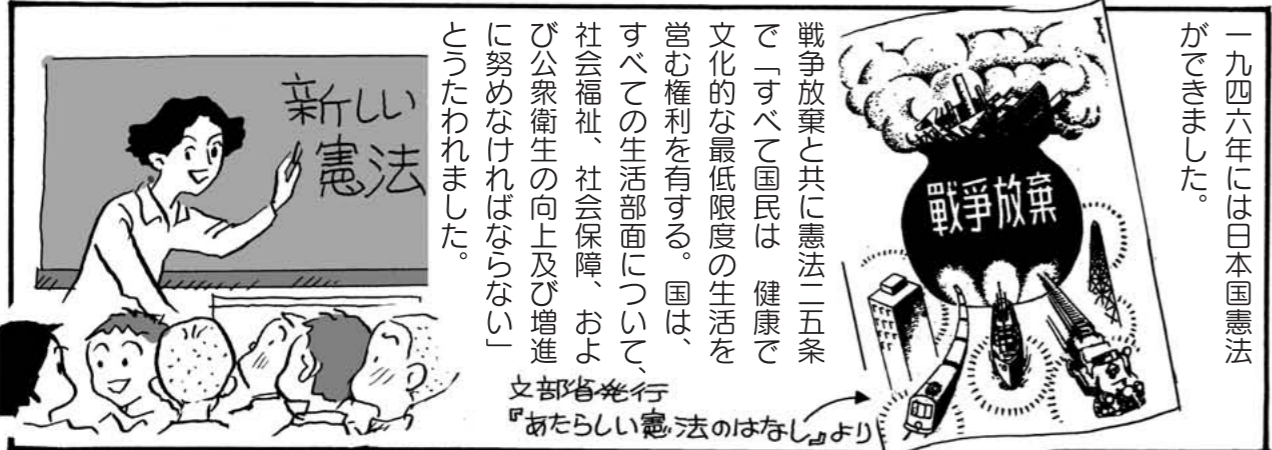 一九四六年には日本国憲法
ができました。
戰爭放棄
戦争放棄と共に憲法二五条
で「すべて国民は　健康で
文化的な最低限度の生活を
営む権利を有する。国は、
すべての生活部面について、
社会福祉、社会保障、およ
び公衆衛生の向上及び増進
に努めなければならない」
とうたわれました。
文部省発行
『あたらしい憲法のはなし』より
新しい
憲法